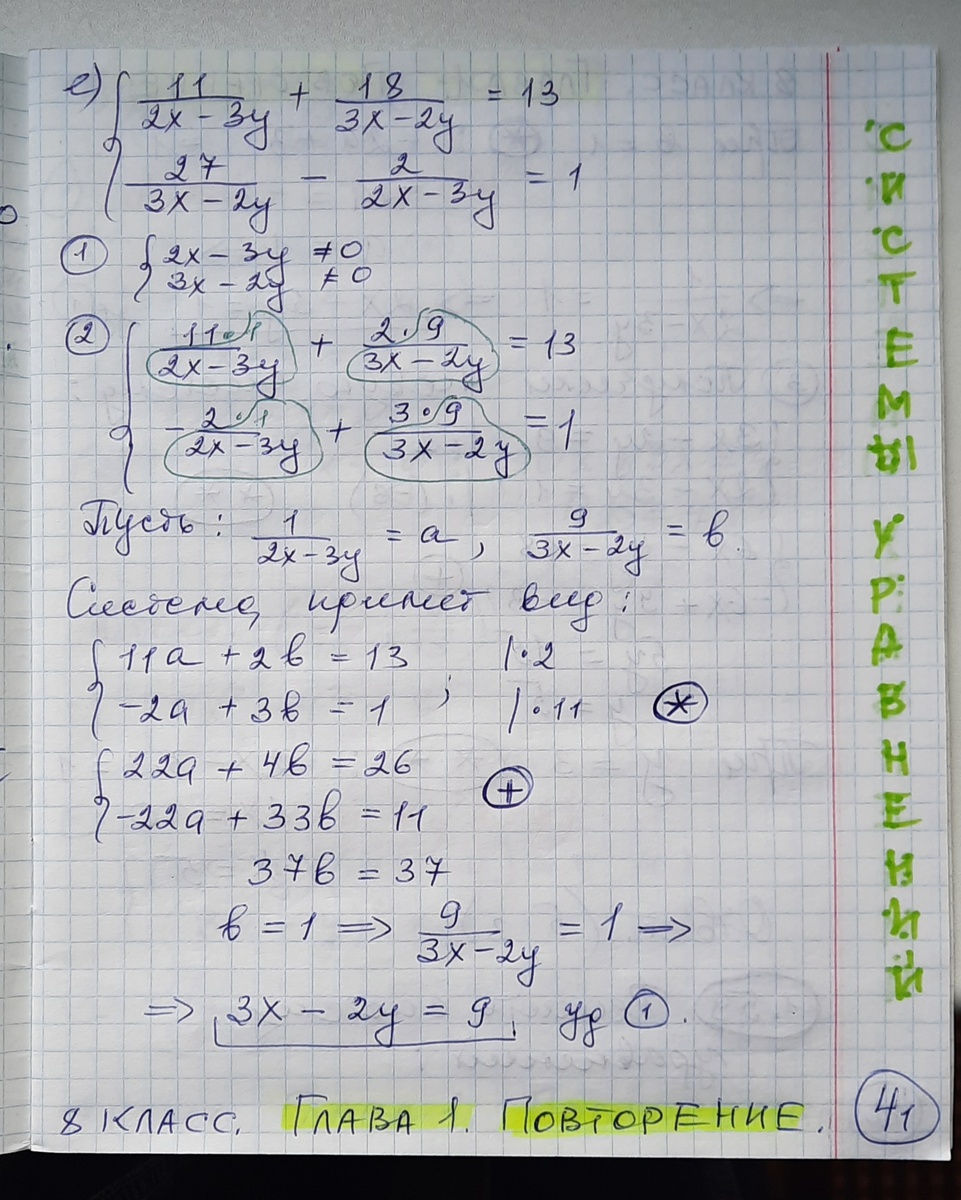 е) { 11/(2x – 3y) + 18/(3x – 2y) = 13
27/(3x – 2y) – 2/(2x – 3y) = 1
① { 2x – 3y ≠ 0
3x – 2y ≠ 0
② { 11·1/(2x – 3y) + 2·9/(3x – 2y) = 13
– 2·1/(2x – 3y) + 3·9/(3x – 2y) = 1
Пусть: 1/(2x – 3y) = a, 9/(3x – 2y) = в.
Система примет вид:
{ 11a + 2в = 13 ; |·2
–2a + 3в = 1 |·11 (*)
{ 22a + 4в = 26 (+)
–22a + 33в = 11
37в = 37
в = 1 ⟹ 9/(3x – 2y) = 1 ⟹
⟹ 3x – 2y = 9, уд ①.
8 КЛАСС. ГЛАВА 1. ПОВТОРЕНИЕ.
41
СИСТЕМЫ УРАВНЕНИЙ